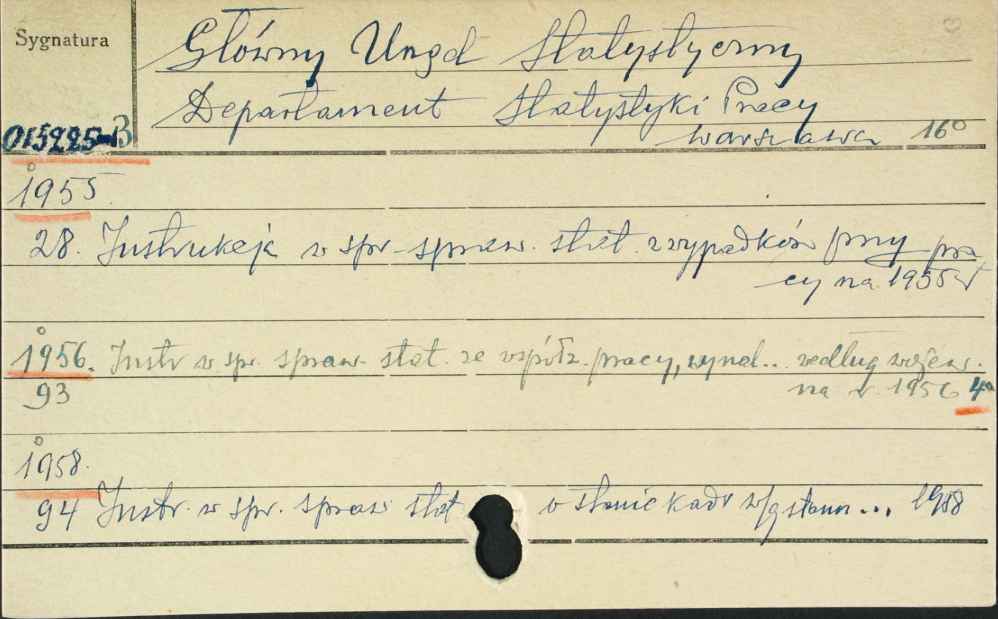 Sygnatura
Główny Urząd Statystyczny
Departament Statystyki Pracy
015225-B
Warszawa 16°
1955
28. Instrukcja w spr. spraw. stat. z wypadków przy pra
cy na 1955 r
1956. Instr w spr. spraw. stat. ze współz. pracy, wynal... według
93 na r. 1956 4°
1958.
94 Instr. w spr. spraw stat o stanie kadr w/g stanu... 1958